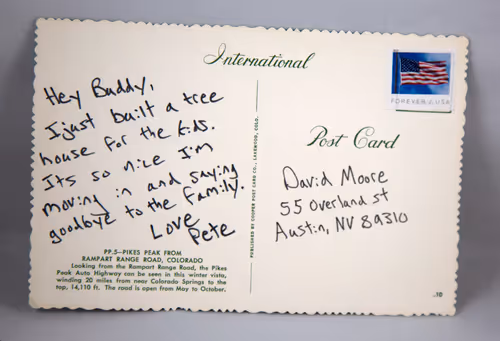 International
FOREVER / USA
Hey Buddy,
I just built a tree
house for the kids.
Its so nice I'm
moving in and saying
goodbye to the family.
Love
Pete
PP.5—PIKES PEAK FROM
RAMPART RANGE ROAD, COLORADO
Looking from the Rampart Range Road, the Pikes
Peak Auto Highway can be seen in this winter vista,
winding 20 miles from near Colorado Springs to the
top, 14,110 ft. The road is open from May to October.
PUBLISHED BY COOPER POST CARD CO., LAKEWOOD, COLO.
Post Card
David Moore
55 Overland st
Austin, NV 89310
10